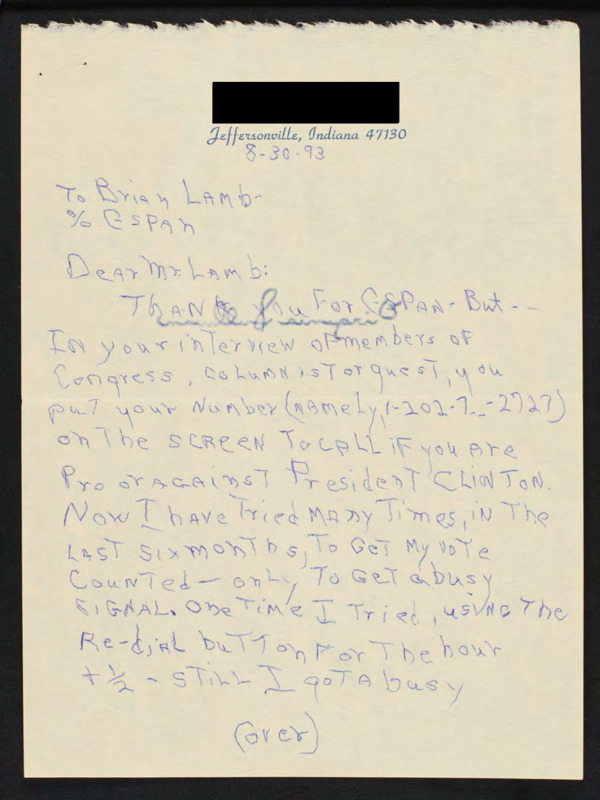 Jeffersonville, Indiana 47130
8-30-93
To Brian Lamb-
% C-SPAN
Dear Mr Lamb:
Thank you For C-SPAN- But--
In your interview of members of
Congress, columnist or guest, you
put your Number (namely, 1-202-7__-2727)
on The SCREEN To CALL if you Are
Pro or AGAINST President CLINTON.
Now I have Tried MANY Times, in The
LAST six months, To Get My vote
Counted- only To Get a busy
SIGNAL. One Time I Tried, using The
Re-dial button For The hour
+ 1/2 - STILL I got A busy
(over)